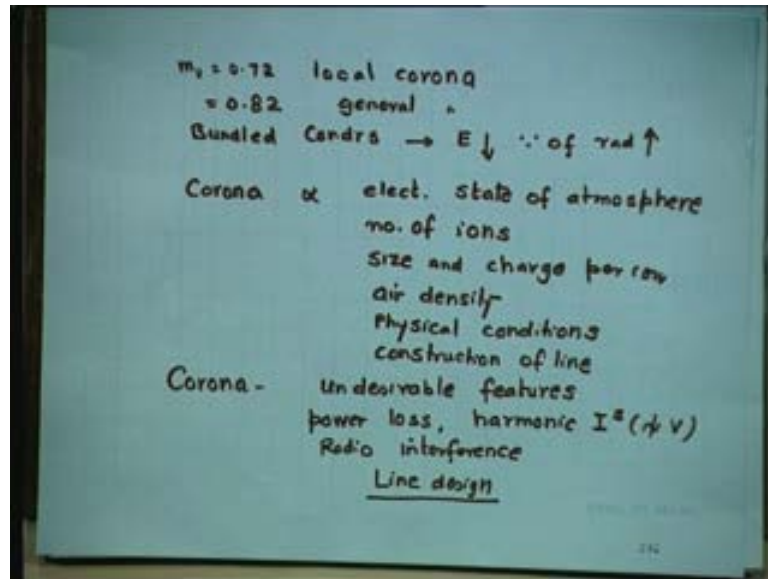 m_v = 0.72 local corona
= 0.82 general "
Bundled Condrs → E↓ ∵ of rad ↑
Corona ∝ elect. state of atmosphere
no. of ions
size and charge per ion
air density
Physical conditions
construction of line
Corona - undesirable features
power loss, harmonic I^s ( V)
Radio interference
Line design